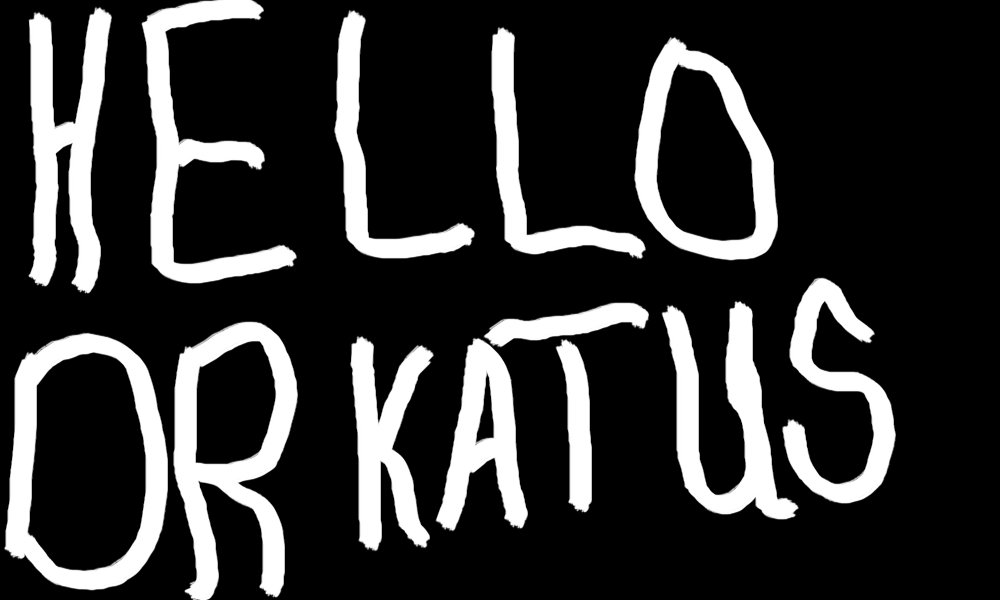 HELLO
OR KATUS